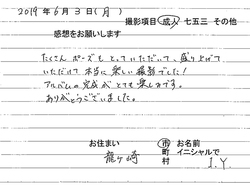 2019年6月3日(月)
撮影項目 成人 七五三 その他
感想をお願いします
たくさんポーズもとっていただいて、盛り上げて
いただけて本当に楽しい撮影でした!
アルバムの完成がとても楽しみです。
ありがとうございました。
お住まい 市 お名前
龍ヶ崎 町 イニシャルで
村 I.Y